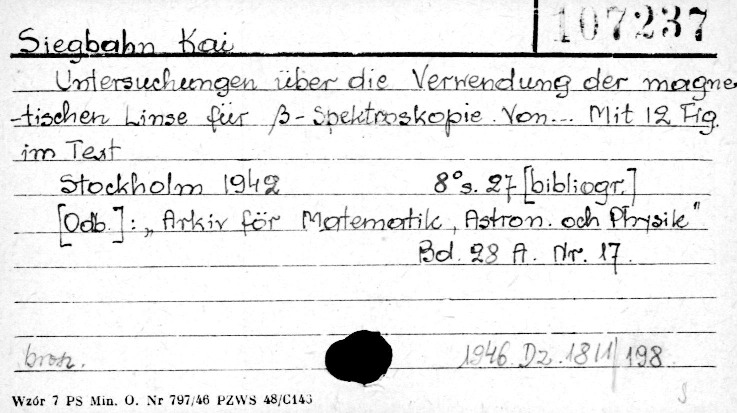 107237
Siegbahn Kai
Untersuchungen über die Verwendung der magne
-tischen Linse für β-Spektroskopie. Von... Mit 12 Fig.
im Text
Stockholm 1942 8° s. 27 [bibliogr.]
[Odb.]: „Arkiv för Matematik, Astron. och Physik"
Bd. 28 A. Nr. 17.
brosz. 1946 Dz. 198
Wzór 7 PS Min. O. Nr 797/46 PZWS 48/C143